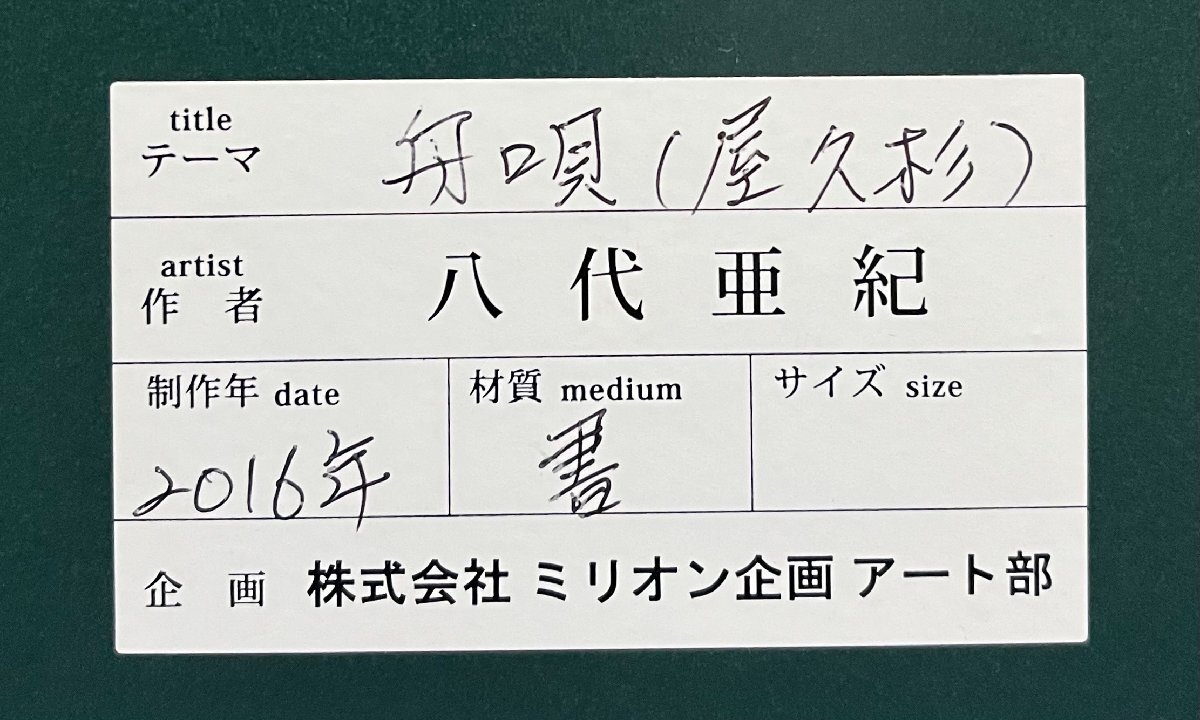 title
テーマ
舟唄(屋久杉)
artist
作 者
八代亜紀
制作年 date
材質 medium
サイズ size
2016年
書
企 画 株式会社 ミリオン企画 アート部